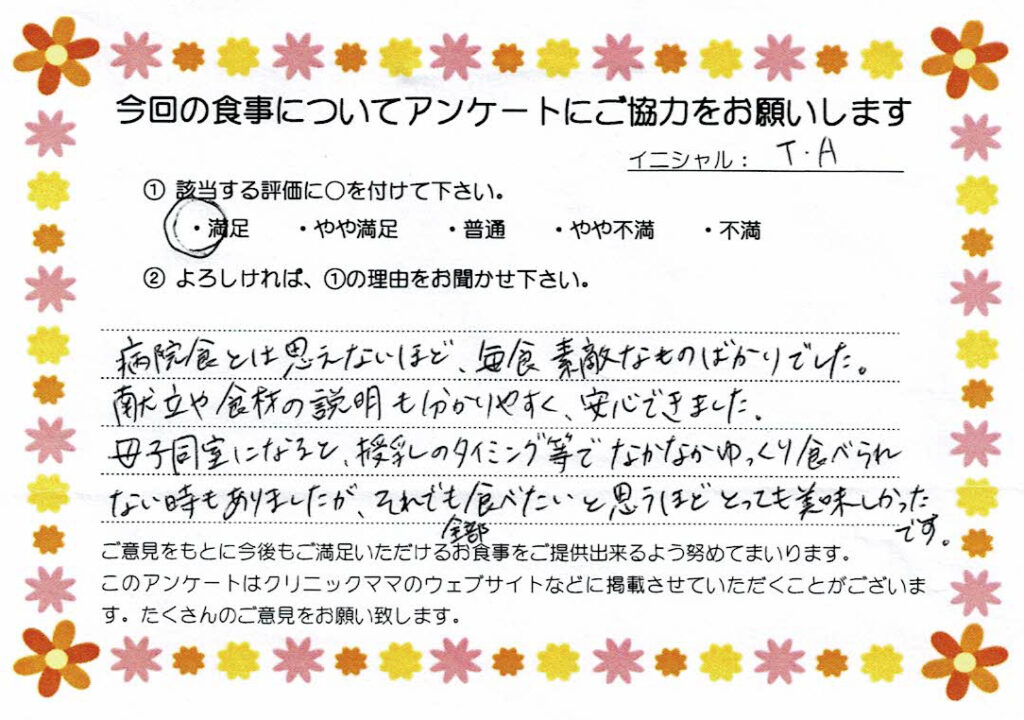 今回の食事についてアンケートにご協力をお願いします
イニシャル： T・A
① 該当する評価に○を付けて下さい。
・満足　・やや満足　・普通　・やや不満　・不満
② よろしければ、①の理由をお聞かせ下さい。
病院食とは思えないほど、毎食 素敵なものばかりでした。
献立や食材の説明も分かりやすく、安心できました。
母子同室になると、授乳のタイミング等でなかなかゆっくり食べられ
ない時もありましたが、それでも全部食べたいと思うほどとっても美味しかった
です。
ご意見をもとに今後もご満足いただけるお食事をご提供出来るよう努めてまいります。
このアンケートはクリニックママのウェブサイトなどに掲載させていただくことがございま
す。たくさんのご意見をお願い致します。